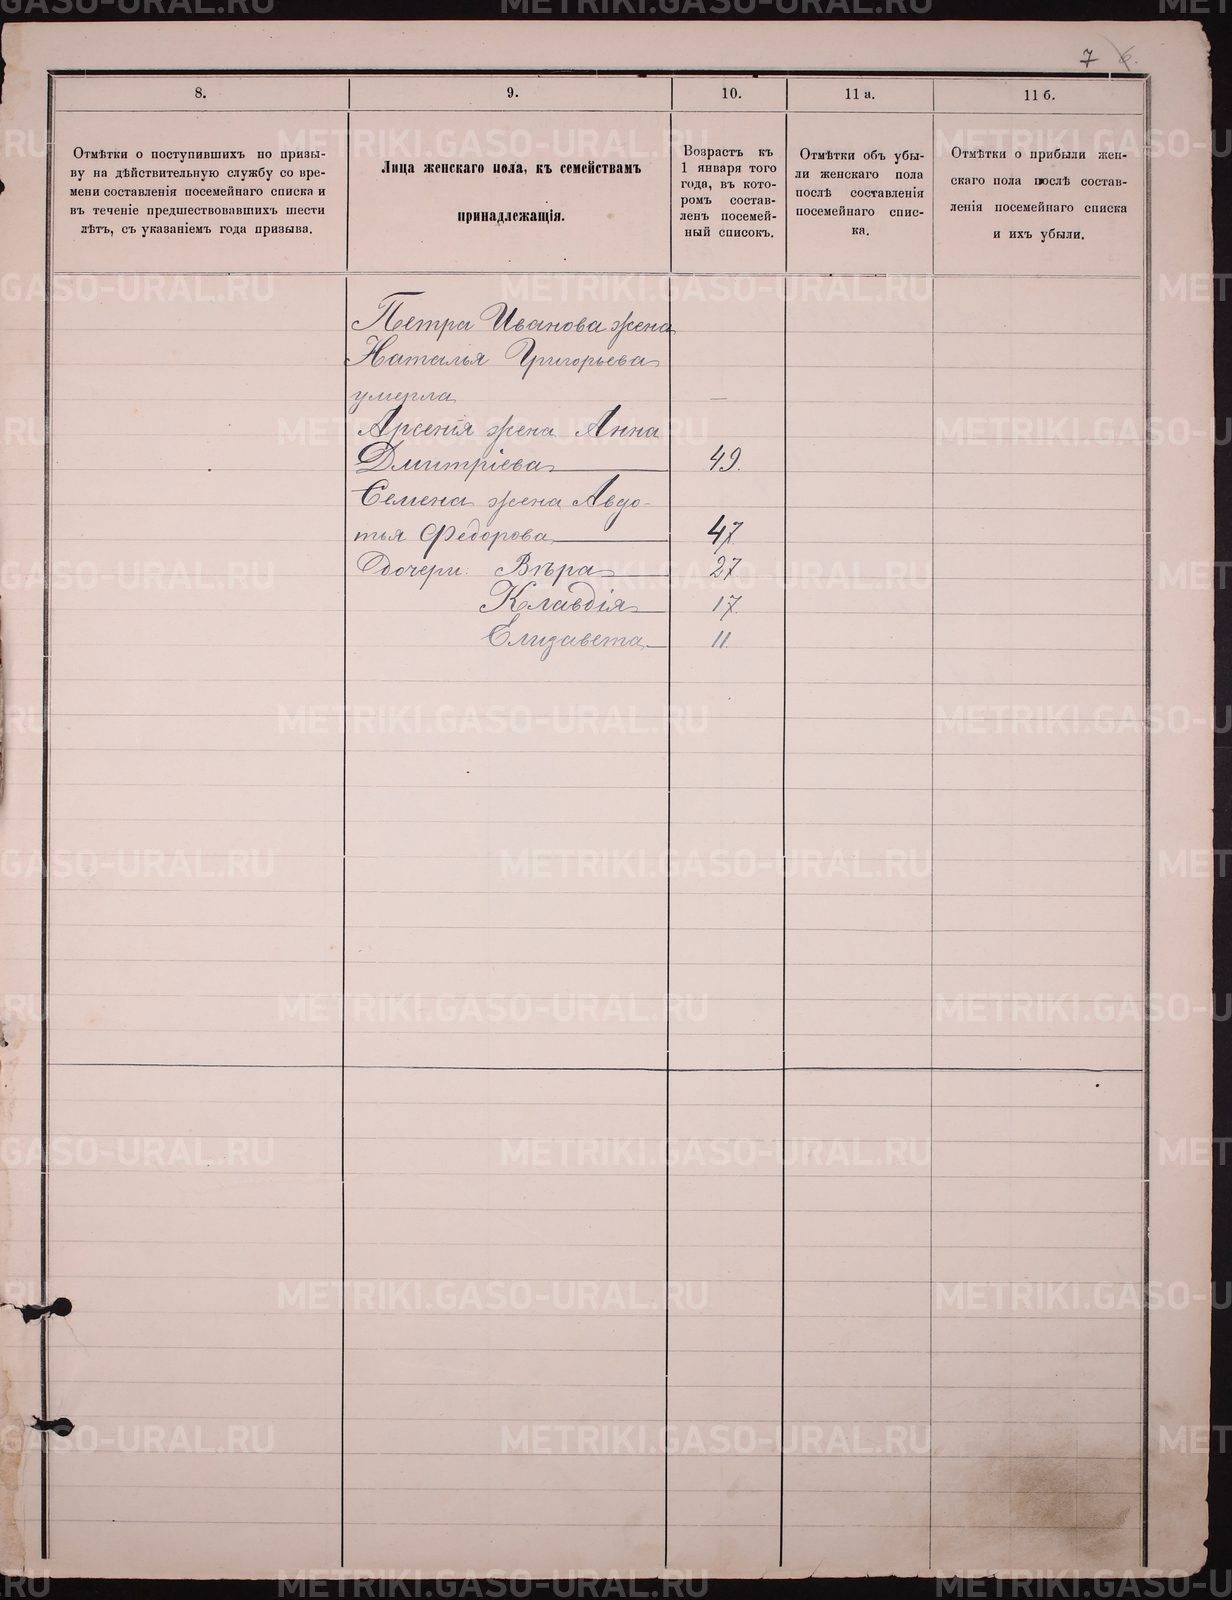 7 6.
8.
9.
10.
11 а.
11 б.
Отмѣтки о поступившихъ по призы-
ву на дѣйствительную службу со вре-
мени составленія посемейнаго списка и
въ теченіе предшествовавшихъ шести
лѣтъ, съ указаніемъ года призыва.
Лица женскаго пола, къ семействамъ
принадлежащія.
Возрастъ къ
1 января того
года, въ кото-
ромъ состав-
ленъ посемей-
ный списокъ.
Отмѣтки объ убы-
ли женскаго пола
послѣ составленія
посемейнаго спис-
ка.
Отмѣтки о прибыли жен-
скаго пола послѣ состав-
ленія посемейнаго списка
и ихъ убыли.
Петра Иванова жена
Наталья Григорьева
умерла —
Арсенія жена Анна
Дмитріева 49.
Семена жена Авдо-
тья Федорова 47
Дочери: Вѣра 27
Клавдія 17.
Елизавета 11.
METRIKI.GASO-URAL.RU